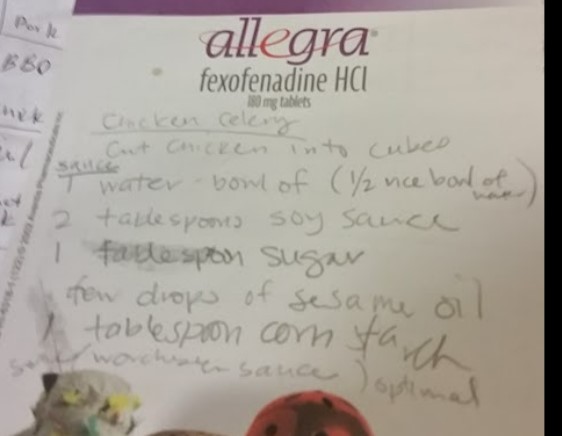 Pork
BBQ
allegra®
fexofenadine HCl
180 mg tablets
Chicken Celery
Cut chicken into cubes
sauce
1 water - bowl of (1/2 rice bowl of water)
2 tablespoons soy sauce
1 tablespoon sugar
few drops of sesame oil
1 tablespoon corn starch
sauce) optimal